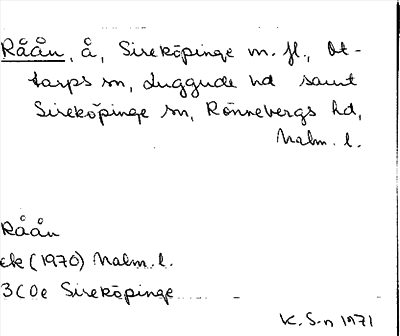 Råån, å, Sireköpinge m. fl., Ot-
tarps sn, Luggude hd samt
Sireköpinge sn, Rönnebergs hd,
Malm. l.
Råån
ek (1970) Malm. l.
3C0e Sireköpinge
K. S-n 1971